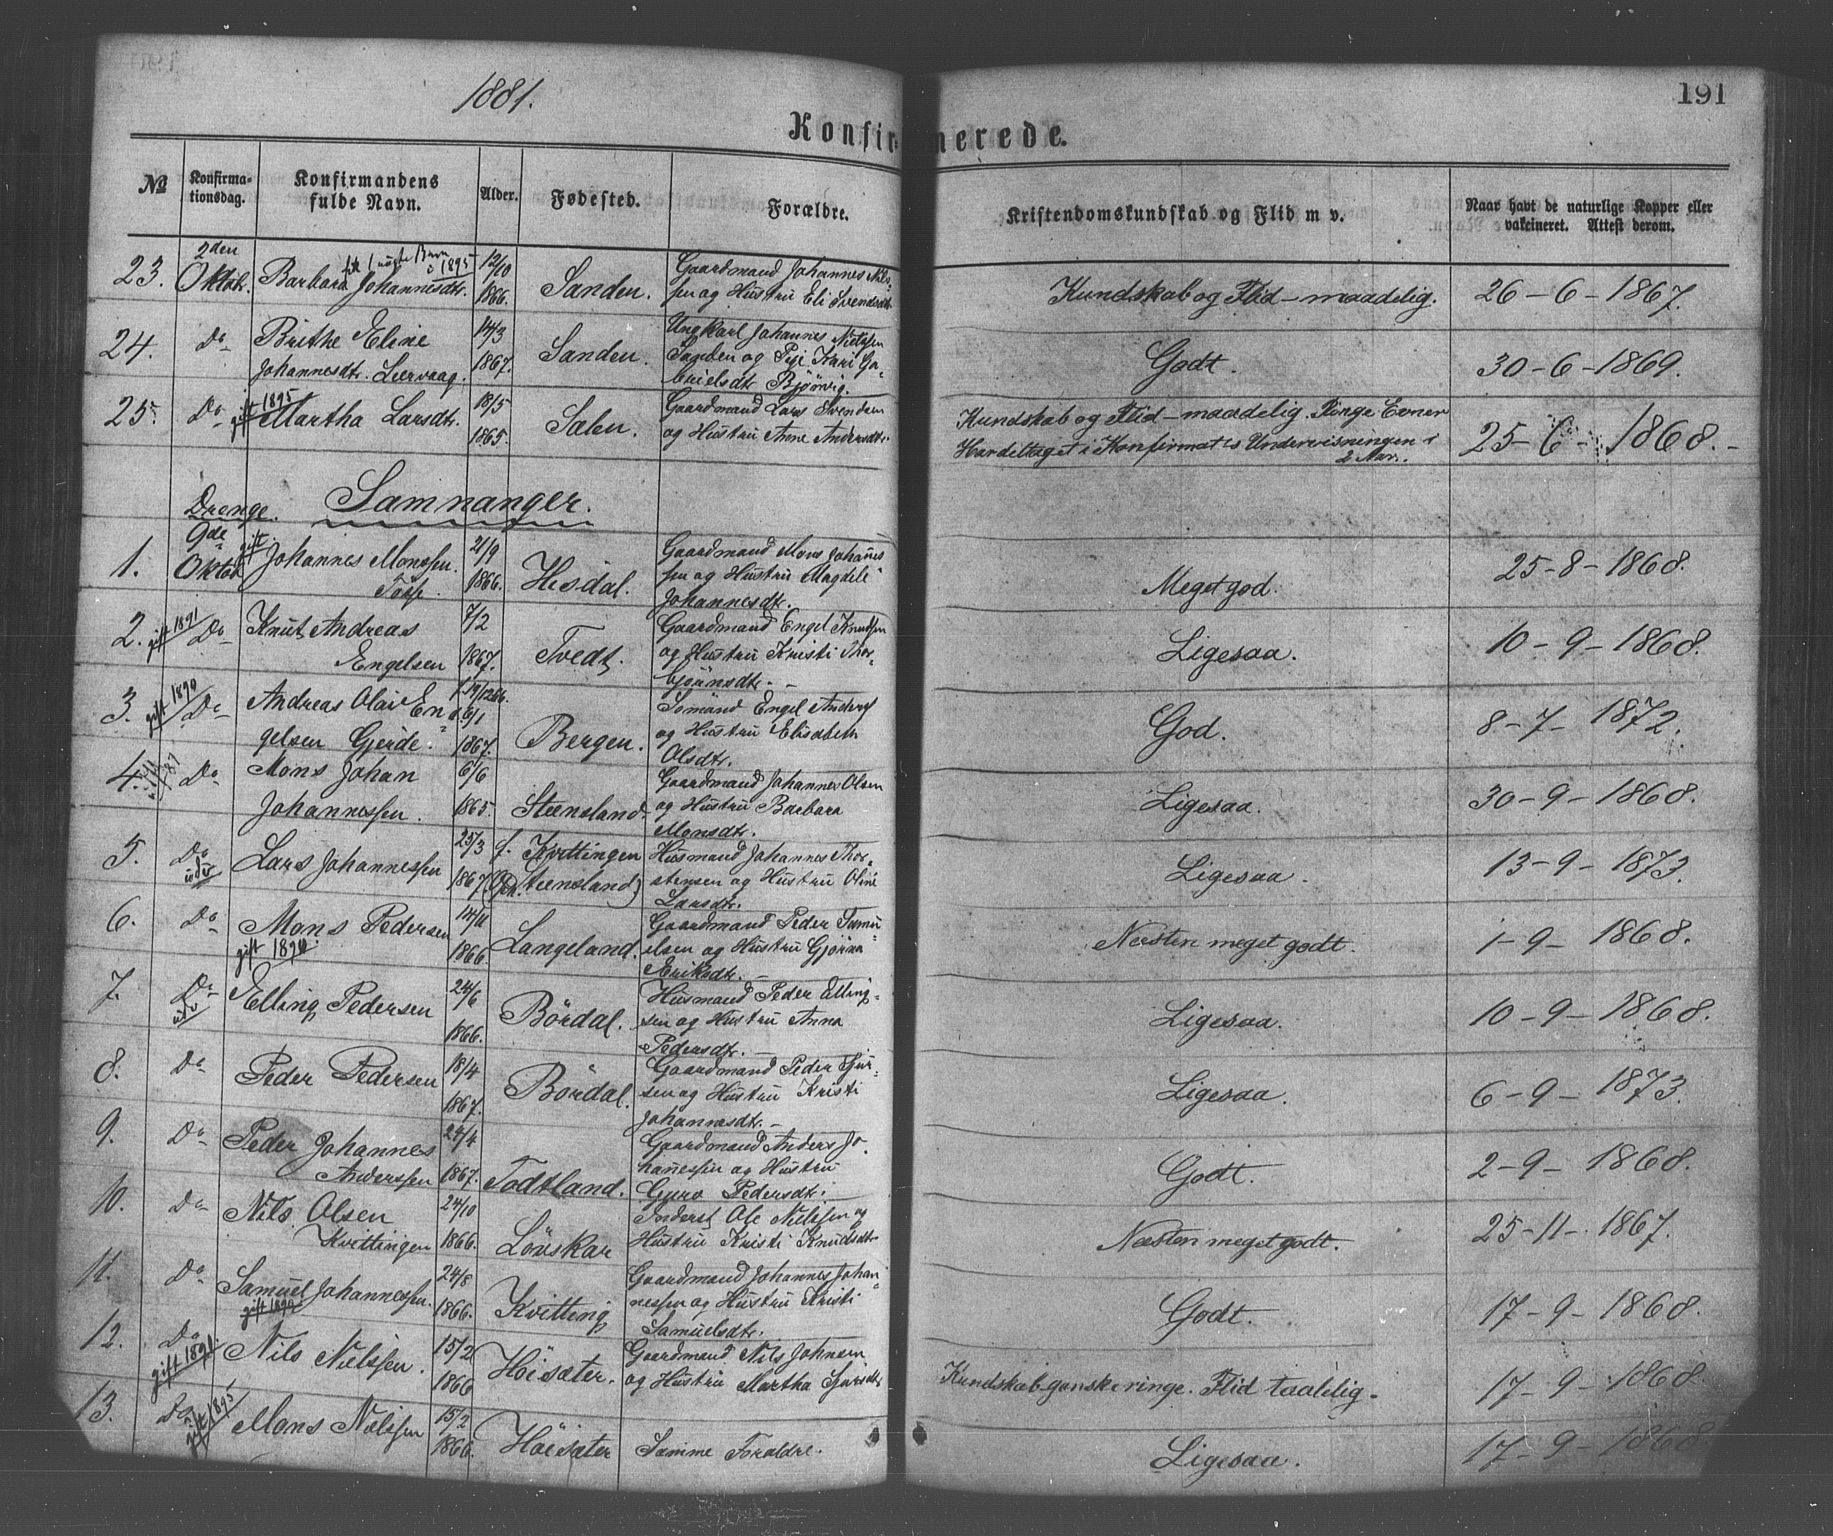 1881.
191
Konfirmerede.
No Konfirmationsdag. Konfirmandens fulde Navn. Alder. Fødested. Forældre. Kristendomskundskab og Flid m v. Naar havt de naturlige Kopper eller vakcineret. Attest derom.
23. 2den Oktob. Barbara Johannesdtr. 12/10 1866. Sanden. Gaardmand Johannes Nilssen og Hustru Eli Svendsdtr. Kundskab og Flid - maadelig. 26-6-1867.
24. Do Brithe Eline Johannesdtr. Leervaag. 14/3 1867. Sanden. Ungkarl Johannes Nielssen Sanden og Pige Kari Gabrielsdtr Bjørvig. Godt. 30-6-1869.
25. Do gift 1895 Martha Larsdtr. 18/5 1865. Salen. Gaardmand Lars Svendsen og Hustru Anne Andersdtr. Kundskab og Flid - maadelig. Ringe Evner Har deltaget i Konfirmat's Undervisningen i 2 Aar. 25-6-1868.-
Samnanger.
Drenge.
1. 9de Oktob gift Johannes Monssen Tøsse. 21/9 1866. Hisdal. Gaardmand Mons Johannessen og Hustru Magdeli Johannesdtr. Meget god. 25-8-1868.
2. gift 1891 Do Knut Andreas Engelsen 7/2 1867. Tvedt. Gaardmand Engel Knutsen og Hustru Kristi Thorbjørnsdtr. - Ligesaa. 10-9-1868.
3. gift 1890 Do Andreas Olai Engelsen Gjerde. 6/1 1867. Bergen. Sømand Engel Anders og Hustru Elisabeth Olsdtr. God. 8-7-1872.
4. Do Mons Johan Johannessen. 6/6 1865. Steensland Gaardmand Johannes Olsen og Hustru Barbara Monsdtr. Ligesaa. 30-9-1868.
5. Do udv Lars Johannessen 25/3 1867 f. Kvittingen (Steensland) Husmand Johannes Thorstensen og Hustru Oline Larsdtr. Ligesaa. 13-9-1873.
6. Do Mons Pedersen gift 1890. 14/11 1866. Langeland. Gaardmand Peder Samuelsen og Hustru Gjørina Eriksdtr. - Næsten meget godt. 1-9-1868.
7. Do udv Elling Pedersen 24/6 1866. Bördal. Husmand Peder Ellingsen og Hustru Anna Pedersdtr. - Ligesaa. 10-9-1868.
8. Do Peder Pedersen 18/4 1867. Bördal. Gaardmand Peder Sjursen og Hustru Kristi Johannesdtr. - Ligesaa. 6-9-1873.
9. Do Peder Johannes Anderssen 24/4 1867. Todtland. Gaardmand Anders Johannessen og Hustru Gyuro Pedersdtr. Godt. 2-9-1868.
10. Do Nils Olsen Kvittingen 24/10 1866. Lövskar Inderst Ole Nielssen og Hustru Kristi Knudsdtr. Næsten meget godt. 25-11-1867.
11. Do Samuel Johannessen. gift 1890 24/8 1866. Kvitting Gaardmand Johannes Johannessen og Hustru Kristi Samuelsdtr. Godt. 17-9-1868.
12. Do gift 1891. Nils Nielssen. 15/2 1866 Höisæter. Gaardmand Nils Johnsen og Hustru Martha Sjursdtr Kundskab ganske ringe. Flid taalelig. 17-9-1868
13. Do gift 1895 Mons Nielssen 15/2 1866. Höisæter Samme Forældre. Ligesaa. 17-9-1868.